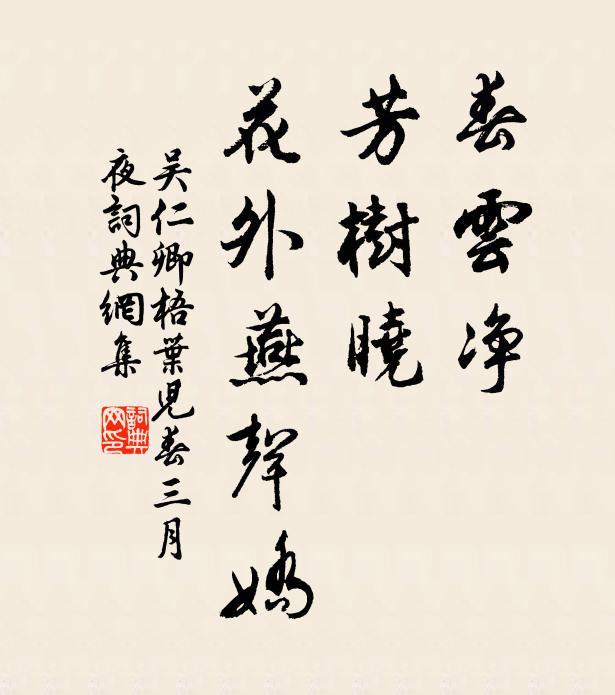 春雲净
芳樹曉
花外燕聲嬌
吴仁卿梧葉兒春三月
夜詞典網集
詞典
网印